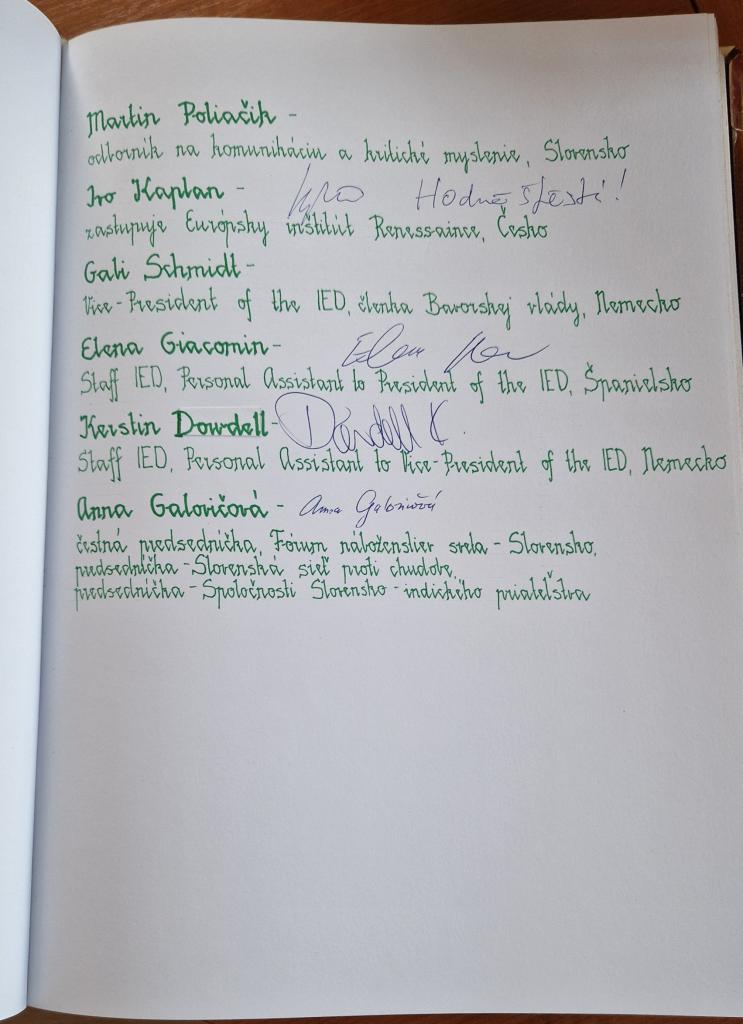 Martin Poliačik -
odborník na komunikáciu a kritické myslenie, Slovensko
Ivo Kaplan - Hodně štěstí!
zastupuje Európsky inštitút Renessaince, Česko
Gabi Schmidt -
Vice-President of the IED, členka Bavorskej vlády, Nemecko
Elena Giacomin -
Staff IED, Personal Assistant to President of the IED, Španielsko
Kerstin Dowdell - Dowdell K.
Staff IED, Personal Assistant to Vice-President of the IED, Nemecko
Anna Galovičová - Anna Galovičová
čestná predsedníčka, Fórum náboženstiev sveta - Slovensko,
predsedníčka - Slovenská sieť proti chudobe,
predsedníčka - Spoločnosti Slovensko - indického priateľstva